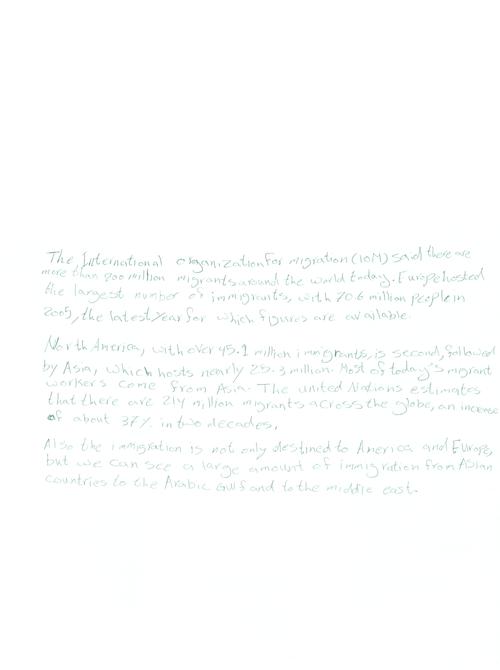 The International organization For migration (IOM) said there are
more than 200 million migrants around the world today. Europe hosted
the largest number of immigrants, with 70.6 million people in
2005, the latest year for which figures are available.
North America, with over 45.1 million immigrants, is second, followed
by Asia, which hosts nearly 25.3 million. Most of today's migrant
workers come from Asia. The united Nations estimates
that there are 214 million migrants across the globe, an increase
of about 37% in two decades.
Also the immigration is not only destined to America and Europe,
but we can see a large amount of immigration from Asian
countries to the Arabic Gulf and to the middle east.